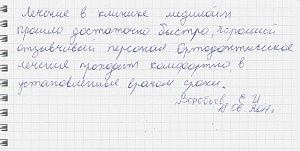 Лечение в клинике медилайн
прошло достаточно быстро, хороший
отзывчивый персонал Ортодонтическое
лечение проходит комфортно, в
установленные врачом сроки.
Воробьев Е И
06. 2017г.